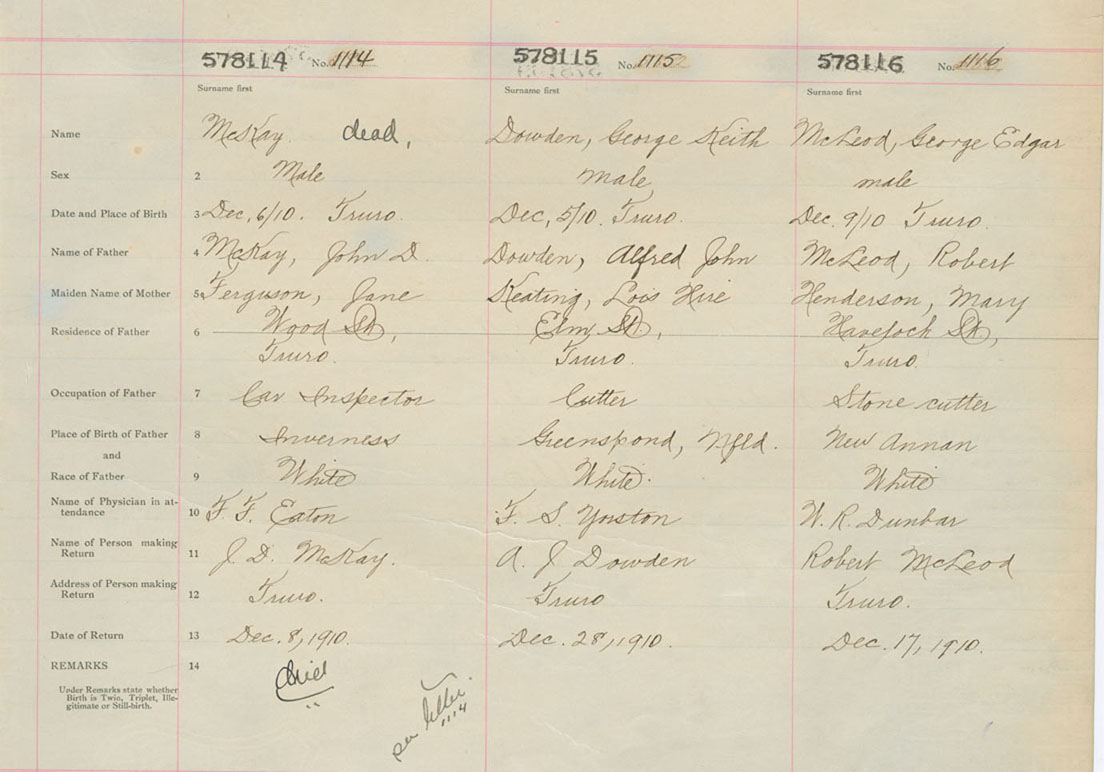 578114 No. 1114 578115 No. 1115 578116 No. 1116
Surname first Surname first Surname first
Name McKay dead, Dowden, George Keith McLeod, George Edgar
Sex 2 Male male male
Date and Place of Birth 3 Dec, 6/10. Truro. Dec, 5/10. Truro. Dec. 9/10 Truro.
Name of Father 4 McKay, John D. Dowden, Alfred John McLeod, Robert
Maiden Name of Mother 5 Ferguson, Jane Keating, Lois Henderson, Mary
Residence of Father 6 Wood St, Elm St, Havelock St,
Truro. Truro. Truro.
Occupation of Father 7 Car Inspector Cutter Stone cutter
Place of Birth of Father 8 Inverness Greenspond, Nfld. New Annan
and
Race of Father 9 White White. White
Name of Physician in at-
tendance 10 F. F. Eaton F. S. Yorston W. R. Dunbar
Name of Person making
Return 11 J. D. McKay. A. J Dowden Robert McLeod
Address of Person making
Return 12 Truro. Truro Truro.
Date of Return 13 Dec. 8, 1910. Dec. 28, 1910. Dec. 17, 1910.
REMARKS 14
died
Under Remarks state whether
Birth is Twin, Triplet, Ille-
gitimate or Still-birth.
see letter
1114